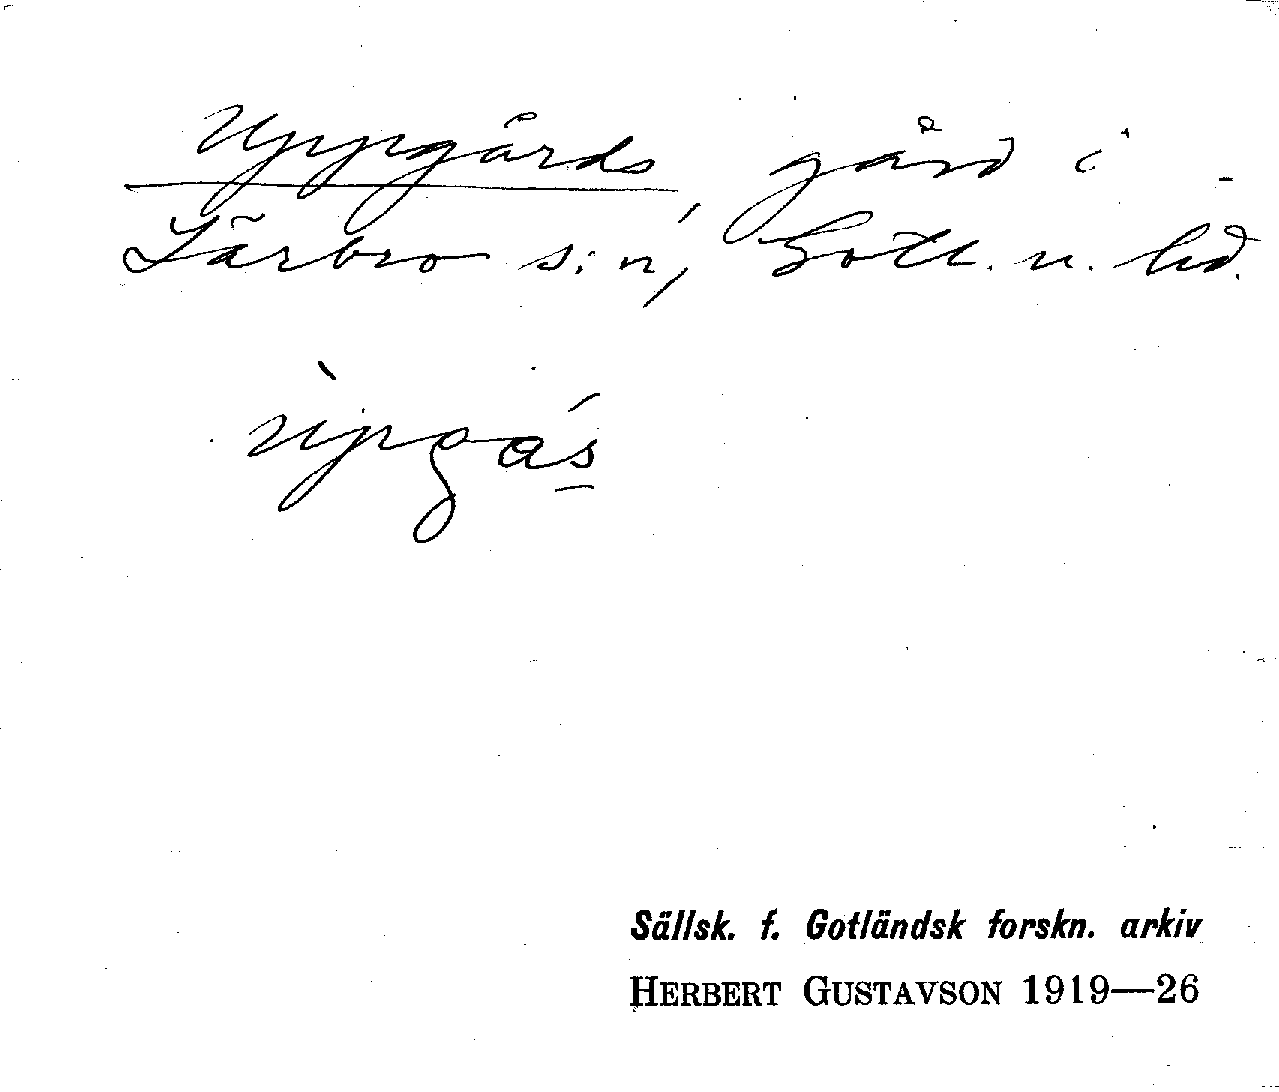 Uppgårds, gård i
Lärbro s:n, Gotl. n. hd.
ùpgás
Sällsk. f. Gotländsk forskn. arkiv
HERBERT GUSTAVSON 1919—26